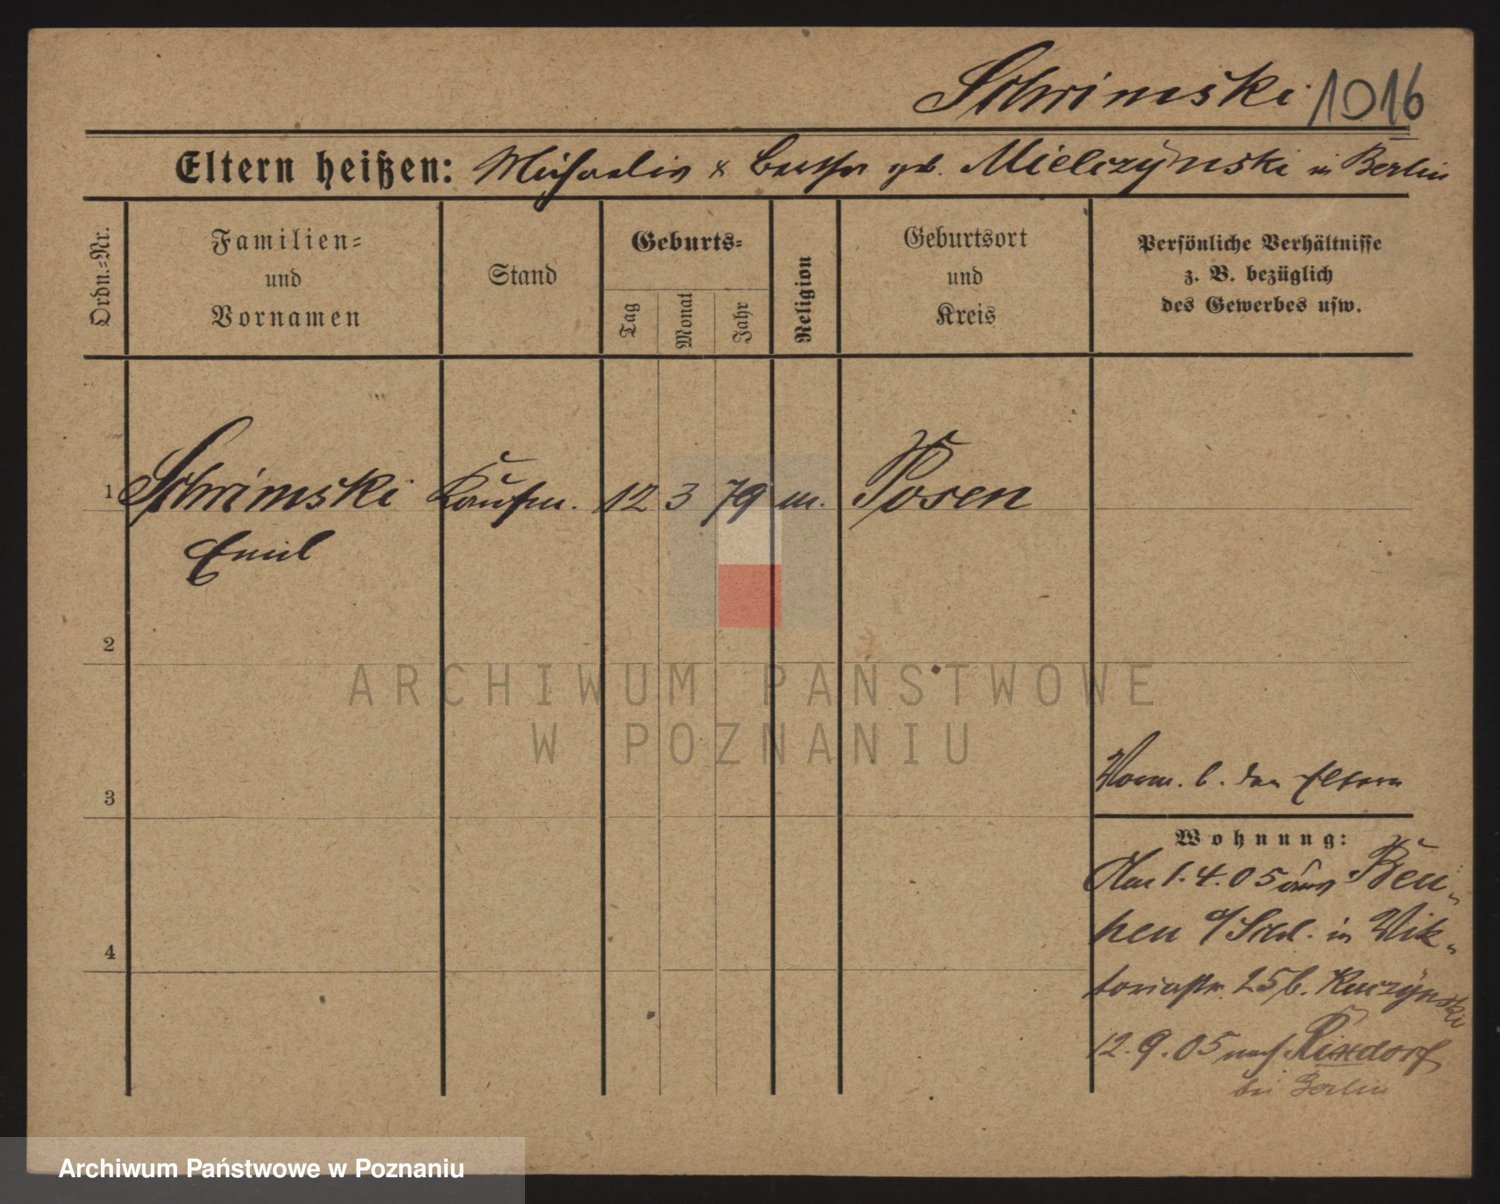 Schrimski 1016
Eltern heißen: Michaelis & Bertha geb. Mielczynski in Berlin
Ordn.=Nr.
Familien=
und
Vornamen
Stand
Geburts=
Tag
Monat
Jahr
Religion
Geburtsort
und
Kreis
Persönliche Verhältnisse
z. B. bezüglich
des Gewerbes usw.
1 Schrimski Kaufm. 12 3 79 m. Posen
Emil
2
3
4
Vorm. b. den Eltern
Wohnung:
Am 1.4.05 aus Beu-
then o/Schl. in Vik-
toriastr. 25 b. Kuczynski
12.9.05 nach Rixdorf
bei Berlin
ARCHIWUM PAŃSTWOWE
W POZNANIU
Archiwum Państwowe w Poznaniu